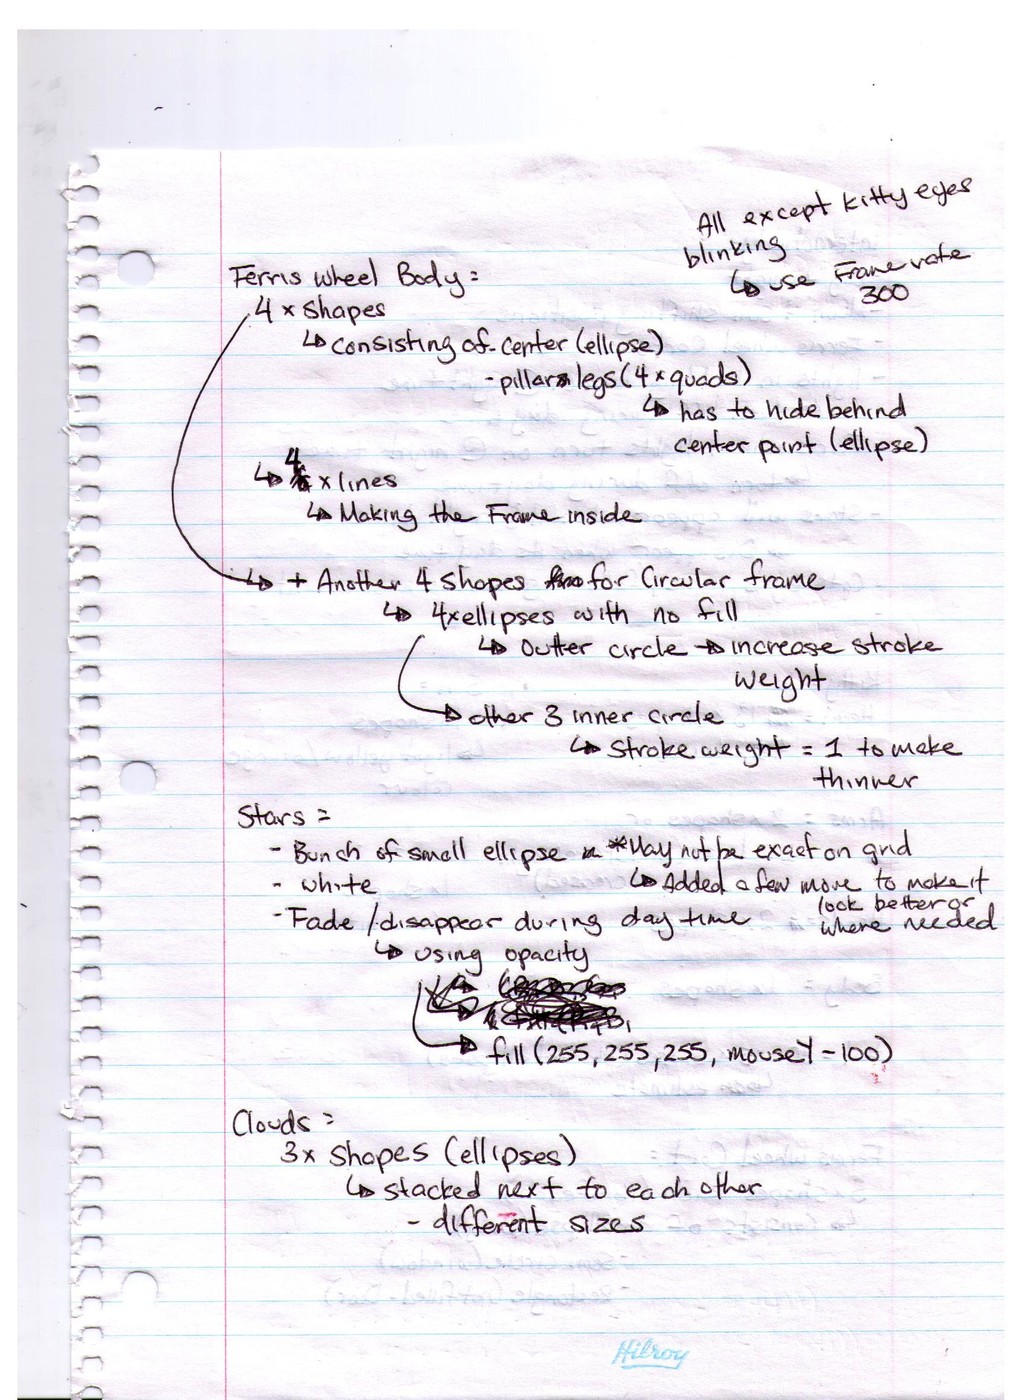 All except kitty eyes
blinking
↳ use Frame rate
300
Ferris wheel Body =
4 x shapes
↳ consisting of center (ellipse)
- pillars legs (4 x quads)
↳ has to hide behind
center point (ellipse)
↳ 4 x lines
↳ Making the Frame inside
↳ + Another 4 shapes for Circular frame
↳ 4x ellipses with no fill
↳ Outter circle → increase stroke
weight
↳ other 3 inner circle
↳ Stroke weight = 1 to make
thinner
Stars =
- Bunch of small ellipse *May not be exact on grid
- white ↳ Added a few more to make it
look better or
- Fade / disappear during day time where needed
↳ using opacity
↳ fill (255, 255, 255, mouseY - 100)
Clouds =
3x shapes (ellipses)
↳ stacked next to each other
- different sizes
Hilroy